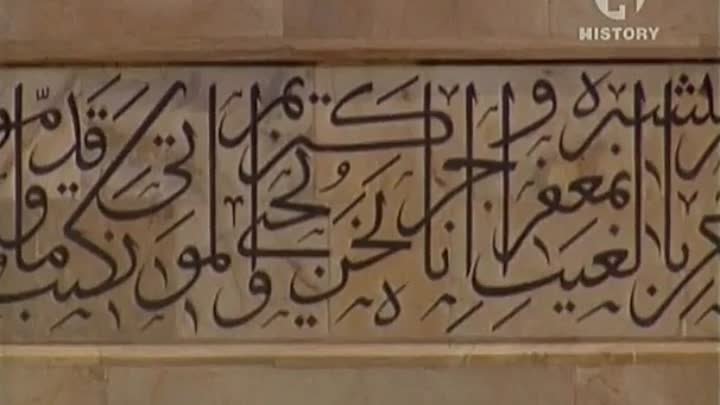 HISTORY
بالغيب فبشره بمغفرة و اجر كريم انا نحن نحي الموتى و نكتب ما قدّموا و